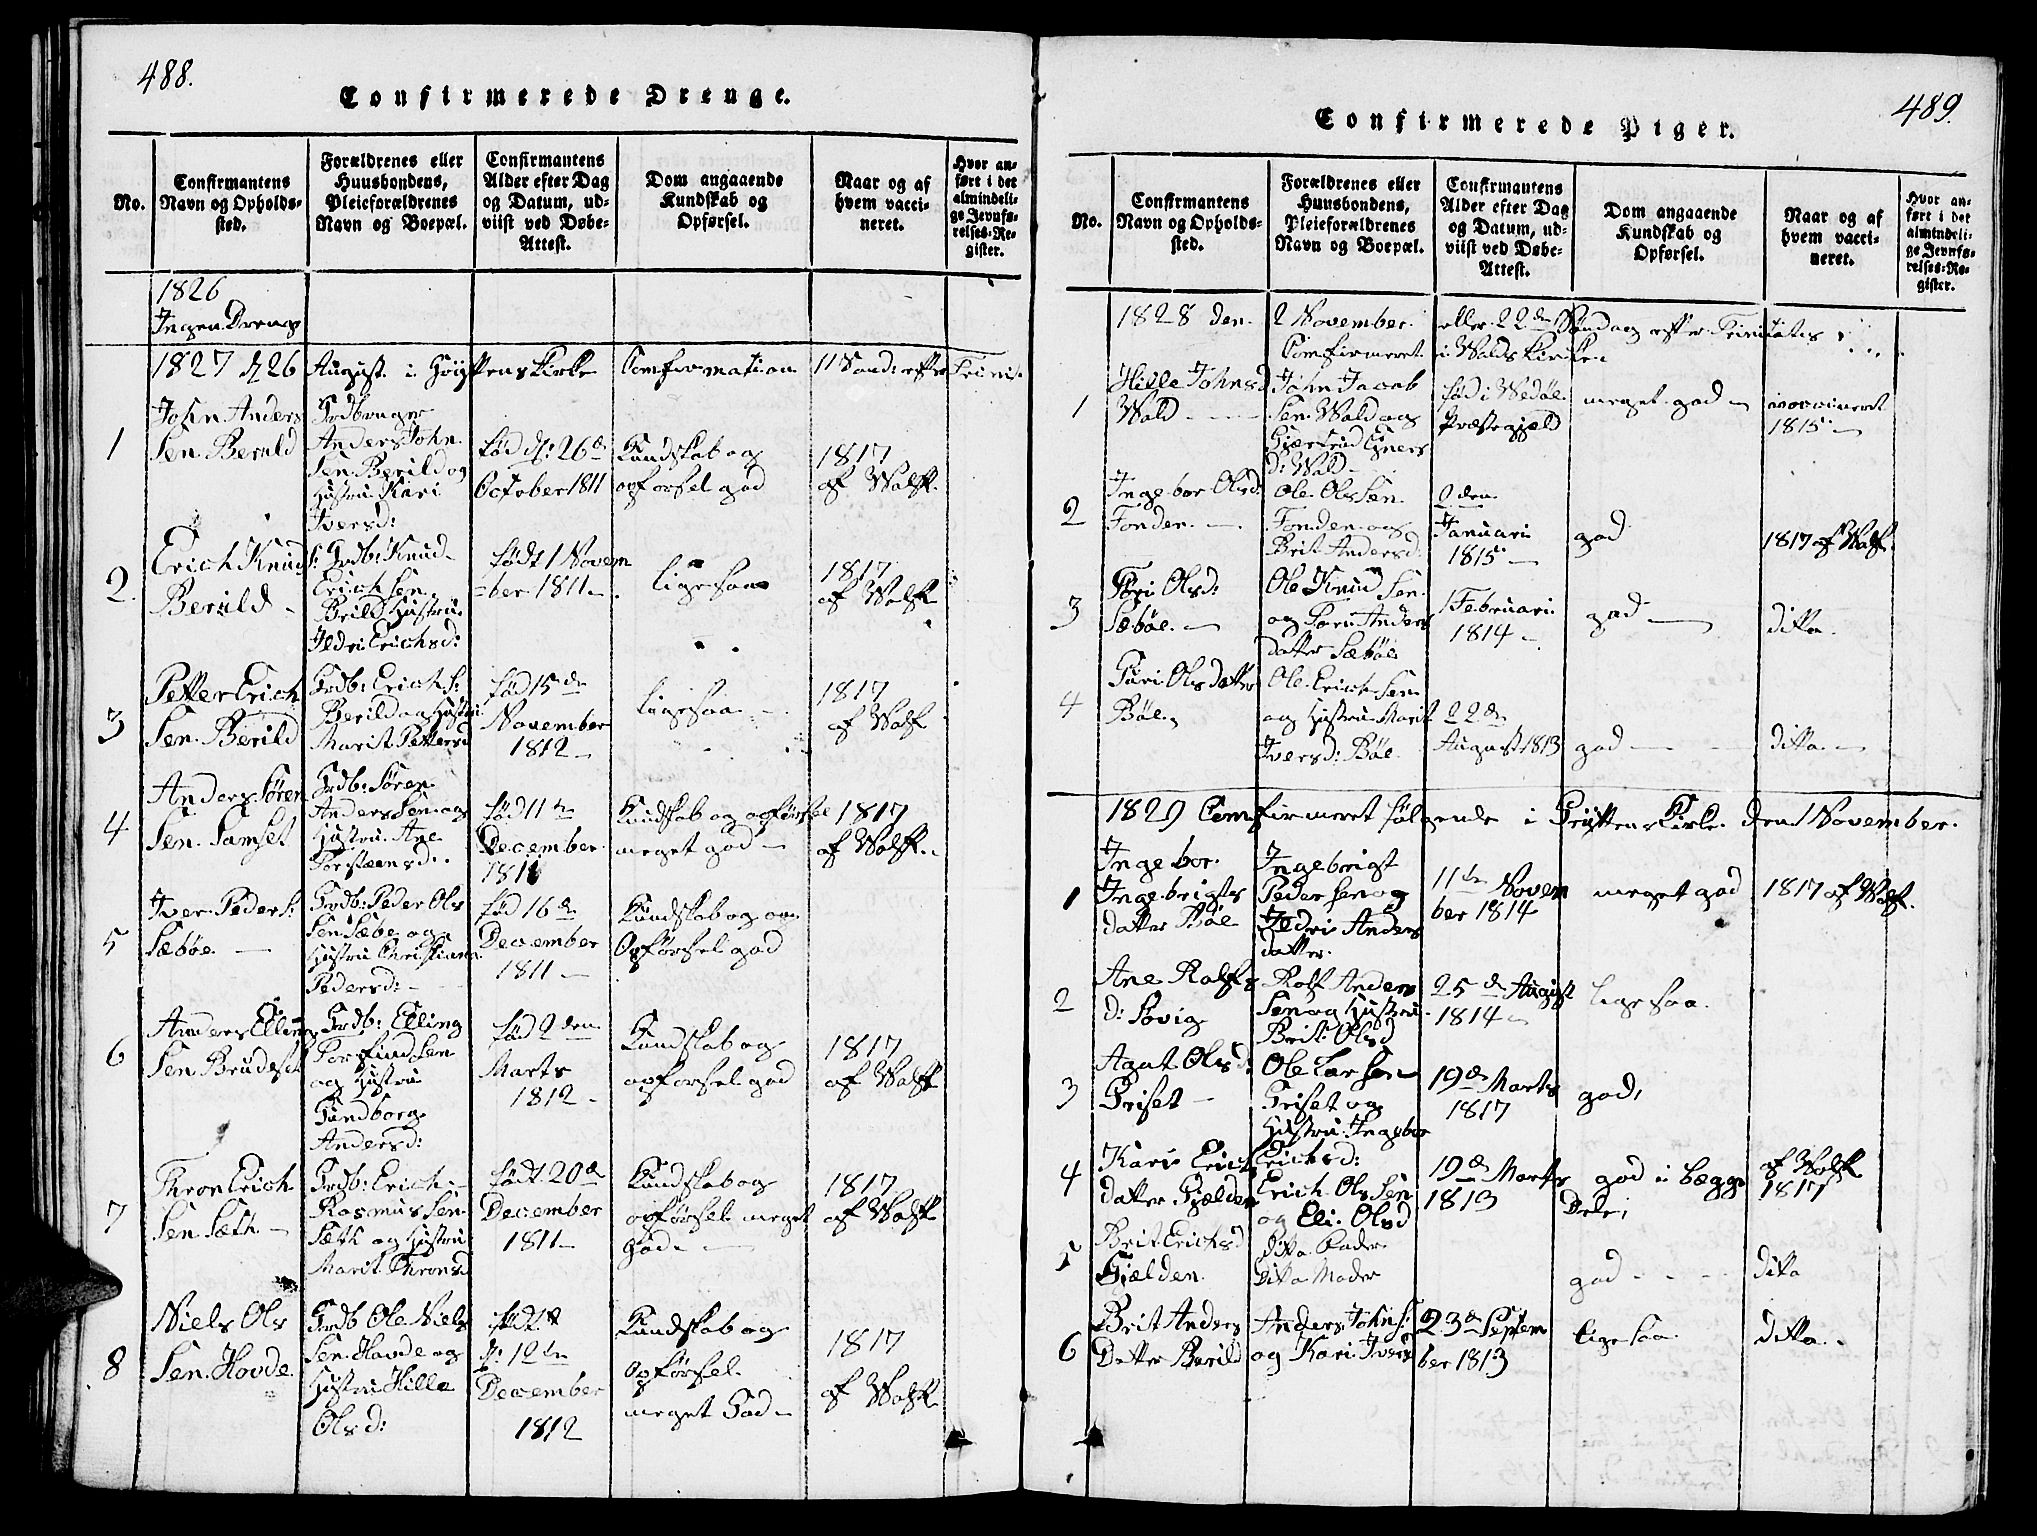 488.
Confirmerede Drenge.
No.
Confirmantens
Navn og Opholds-
sted.
Forældrenes eller
Huusbondens,
Pleieforældrenes
Navn og Boepæl.
Confirmantens
Alder efter Dag
og Datum, ud-
viist ved Døbe-
Attest.
Dom angaaende
Kundskab og
Opførsel.
Naar og af
hvem vacci-
neret.
Hvor an-
ført i det
almindeli-
ge Jevnfø-
relses-Re-
gister.
1826
Ingen Dreng
1827 d 26 August i kirke Comfirmation 11 Sond: efter Trinit.
1
John Anders
Sen. Berild
Grdbruger
Anders John
Sen. Berild og
Hustru Kari
Iversd:
fød d: 26de
October 1811
Kundskab og
opførsel god
1817
af Walff.
2
Erich Knuds:
Berild
Grdb: Knud
Erich Sen.
Brild Hustru
Ildri Erichsd:
født 1 Novem
ber 1811
ligesaa
1817
af Walff
3
Petter Erich
Sen. Berild
Grdb: Erich S:
Berild og Hustru
Marit Pettersd
fød 15de
November
1812
ligesaa
1817
af Walff
4
Anders Søren
Sen. Samset
Grdb: Søren
Anders Sen. og
Hustru Ane
Torstæensd:
fød 11te
December
1811
Kundskab og opførsel
meget god
1817
af Walff.
5
Iver Peders:
Sæbøe
Grdb: Peder Ols
Sen Sæbe og
Hustru Christiana
Pedersd:
fød 16de
December
1811
Kundskab og
Opførsel god
6
Anders Elling
Sen Brudeset
Grdb: Elling
Torfind Sen
og Hustru
Gundborg
Andersd:
fød 2den
Marts
1812
Kundskab og
opførsel god
1817
af Walff
7
Thron Erich
Sen Sæth
Grdb: Erich
Rasmus Sen
Sæth og Hustru
Marit Thronsd
født 20de
December
1811
Kundskab og
opførsel meget
god
1817
af Walff
8
Niels Ols
Sen. Hovde
Grdb Ole Niels
Sen. Hovde og
Hustru Hilla
Olsd:
født
d: 12te
December
1812
Kundskab og
Opførsel
meget God
1817
af Walff
489.
Confirmerede Piger.
No.
Confirmantens
Navn og Opholds-
sted.
Forældrenes eller
Huusbondens,
Pleieforældrenes
Navn og Boepæl.
Confirmantens
Alder efter Dag
og Datum, ud-
viist ved Døbe-
Attest.
Dom angaaende
Kundskab og
Opførsel.
Naar og af
hvem vacci-
neret.
Hvor an-
ført i det
almindeli-
ge Jevnfø-
relses-Re-
gister.
1828 den 2 November eller 22de Søndag efter Trinitatis
Comfirmeret i Walds Kirken
1
Hille Johnsd
Wald
John Jacob
Sen. Wald og
Giærtrud
d: Wald
fød i Wedøe
Præstegjæld
meget god
vaccineret
1815
2
Ingebor Olsd:
Fonden
Ole Ols Sen.
Fonden og
Brit Andersd:
2den
Januari
1815
god
1817 af Walf.
3
Tøri Olsd:
Sæbøe
Ole Knud Sen.
og Anders
datter Sæbøe
1 Februari
1814
god
ditto
4
Guri Ols datter
Bøe
Ole Erich Sen
og Hustru Marit
Iversd: Bøe
22de
August 1813
god
ditto
1829 Comfirmeret følgende i Kirke den 1 November.
1
Ingebor
Ingebrigts
datter Bøe
Ingebrigt
Peder Sen og
Ildri Anders
datter.
11te Novem
ber 1814
meget god
1817 af Walf.
2
Ane Rolfs
d: Sovig
Rolf Anders
Sen og Hustru
Brit Olsd
25de August
1814
lige saa
3
Agat Olsd:
Griset
Ole Lar Sen
Griset og
Hustru Ingebor
Erichsd:
19de Marts
1817
god,
4
Kari Erich
datter Gjelden
Erich Ols Sen
og Eli Olsd
19de Marts
1813
god i begge
Dele,
af Walff
1817
5
Brit Erichsd
Gjælden
Ditto Fader
Ditto Moder
god
ditto
6
Brit Anders
Datter Berild
Anders Johns:
og Kari Ivers
23de Septem
ber 1813
lige saa
ditto